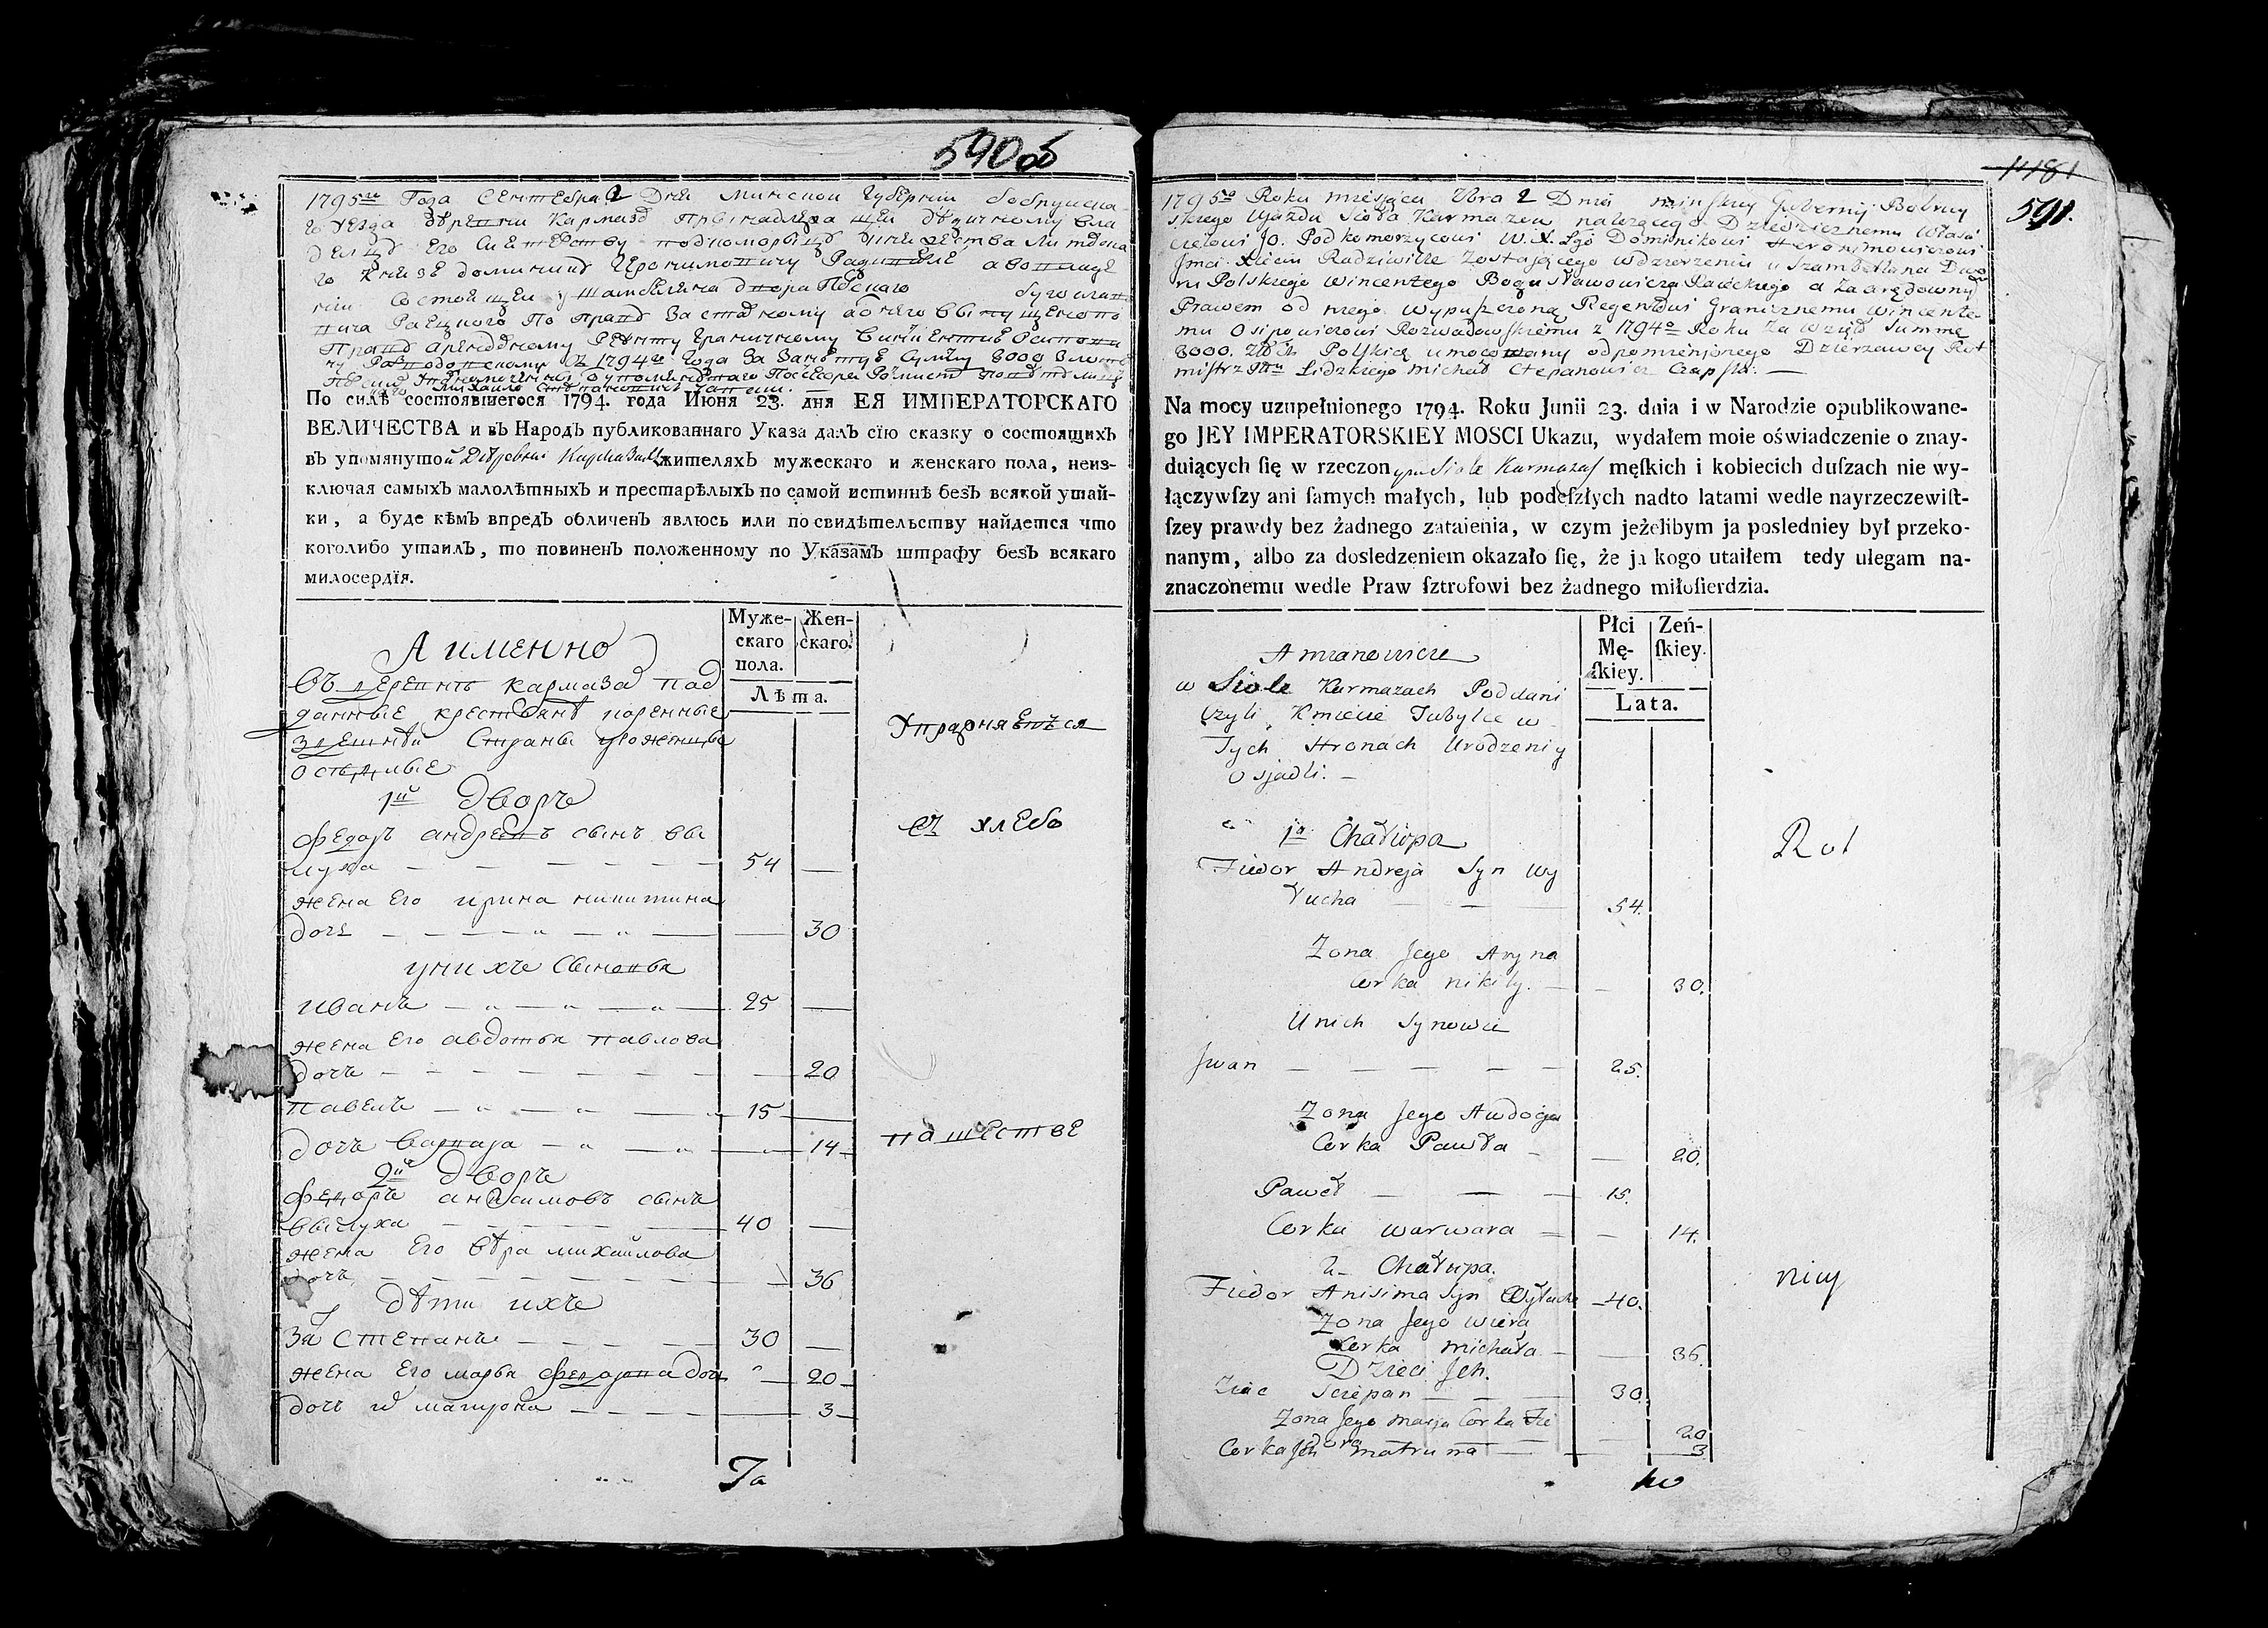 590об
1795го Года Сентебра 2 Дня Минской Губернии Бобруиска
го уезда деревни Кармазъ принадлежащей дедичному вла
дельцу Его Сиятелству подкоморыцу князства Литовска
го князе доминику Иеронимовичу Радивиле а во владе
нии состоящей у шамбеляна двора Полскаго Богуслави
вича Раецкого По праву Заставному а от него выпущеного
Праву арендовному Регенту Граничному Викентию Осипови
чу 1794го года За Занятую Сумму 8000 злоты
По силѣ состоявшегося 1794. года Июня 23. дня ЕЯ ИМПЕРАТОРСКАГО
ВЕЛИЧЕСТВА и въ Народъ публикованнаго Указа далъ сїю сказку о состоящихъ
въ упомянутой Деревни Кармазах жителяхъ мужескаго и женскаго пола, неиз-
ключая самыхъ малолѣтныхъ и престарѣлыхъ по самой истиннѣ безъ всякой утай-
ки, а буде кѣмъ впредъ обличенъ явлюсь или по свидѣтельству найдется что
коголибо утаилъ, то повиненъ положенному по Указамъ штрафу безъ всякаго
милосердїя.
Муже-
скаго
пола.
Жен-
скаго.
Лѣта.
А именно
Въ деревнѣ кармаза под
данные крестьянѣ коренные
здешнѣй Страны уроженцы
оседлые
Управняется
1й дворъ
Федоръ андреевъ сынъ вы
луха — 54 —
въ хлебо
жена Его ирина никитина
дочь — 30
у нихъ сыновья
иванъ — 25 —
жена Его авдотья павлова
дочь — 20
павелъ — 15 —
дочь варвара — 14
пашестве
2й дворъ
Федоръ анисимовъ сынъ
вылуха — 40 —
жена Его вѣра михайлова
дочь — 36
дѣти ихъ
Зя Степанъ — 30 —
жена Его марья федорова дочь — 20
дочь матрона — 3
1181
591.
1795o Roku miesiąca 7bra 2 Dnia minskiey Gubernij Bobruy
skiego ujazdu Sioła Karmazow należącego Dziedzicznemu Właści
cielowi Jo. Podkomorzycowi W. X. Lgo Dominikowi Heronimowiczowi
Jmci Xiciu Radziwiłłe Zostaiącego w dzierzeniu u Szambelana Dwo
ru Polskiego Wincentego Bogusławowicza Raieckiego a Zaarędownym
Prawem od niego wypuszczoną Regentowi Granicznemu Wincente
mu Osipowiczowi Rozwadowskiemu z 1794o Roku za wziętą Summę
8000. Zł. Polskich umocowany odpomienionego Dzierzawcy Rot
mistrz Ptu Lidzkiego Michał Stepanowicz Czapski. —
Na mocy uzupełnionego 1794. Roku Junii 23. dnia i w Narodzie opublikowane-
go JEY IMPERATORSKIEY MOSCI Ukazu, wydałem moie oświadczenie o znay-
duiących ſię w rzeczonym Siole Karmazach męſkich i kobiecich duſzach nie wy-
łączywſzy ani ſamych małych, lub podeſzłych nadto latami wedle nayrzeczewiſt-
ſzey prawdy bez żadnego zataienia, w czym jeżelibym ja posledniey był przeko-
nanym, albo za dosledzeniem okazało ſię, że ja kogo utaiłem tedy ulegam na-
znaczonemu wedle Praw ſztrofowi bez żadnego miłoſierdzia.
Płci
Mę-
ſkiey.
Zeń-
ſkiey.
Lata.
A mianowicie
w Siole Karmazach Poddani
czyli Kmiecie Tubylce w
Tych Stronach Urodzeni y
osjadli. —
1a Chałupa
Rol
Fiedor Andreja Syn Wy
łucha — 54.
Zona Jego Aryna
Corka nikity. — 30.
U nich Synowie
Jwan — 25.
Zona Jego Audocya
Corka Pawła — 20.
Paweł — 15.
Corka warwara — 14.
2 Chałupa.
nicy
Fiedor Anisima Syn Wyłucha — 40.
Zona Jego wiera
Corka michała — 36.
Dzieci Jch.
Ziac Sciepan — 30.
Zona Jego marja Corka Fie
dora — 20
Corka Jch matruna — 3